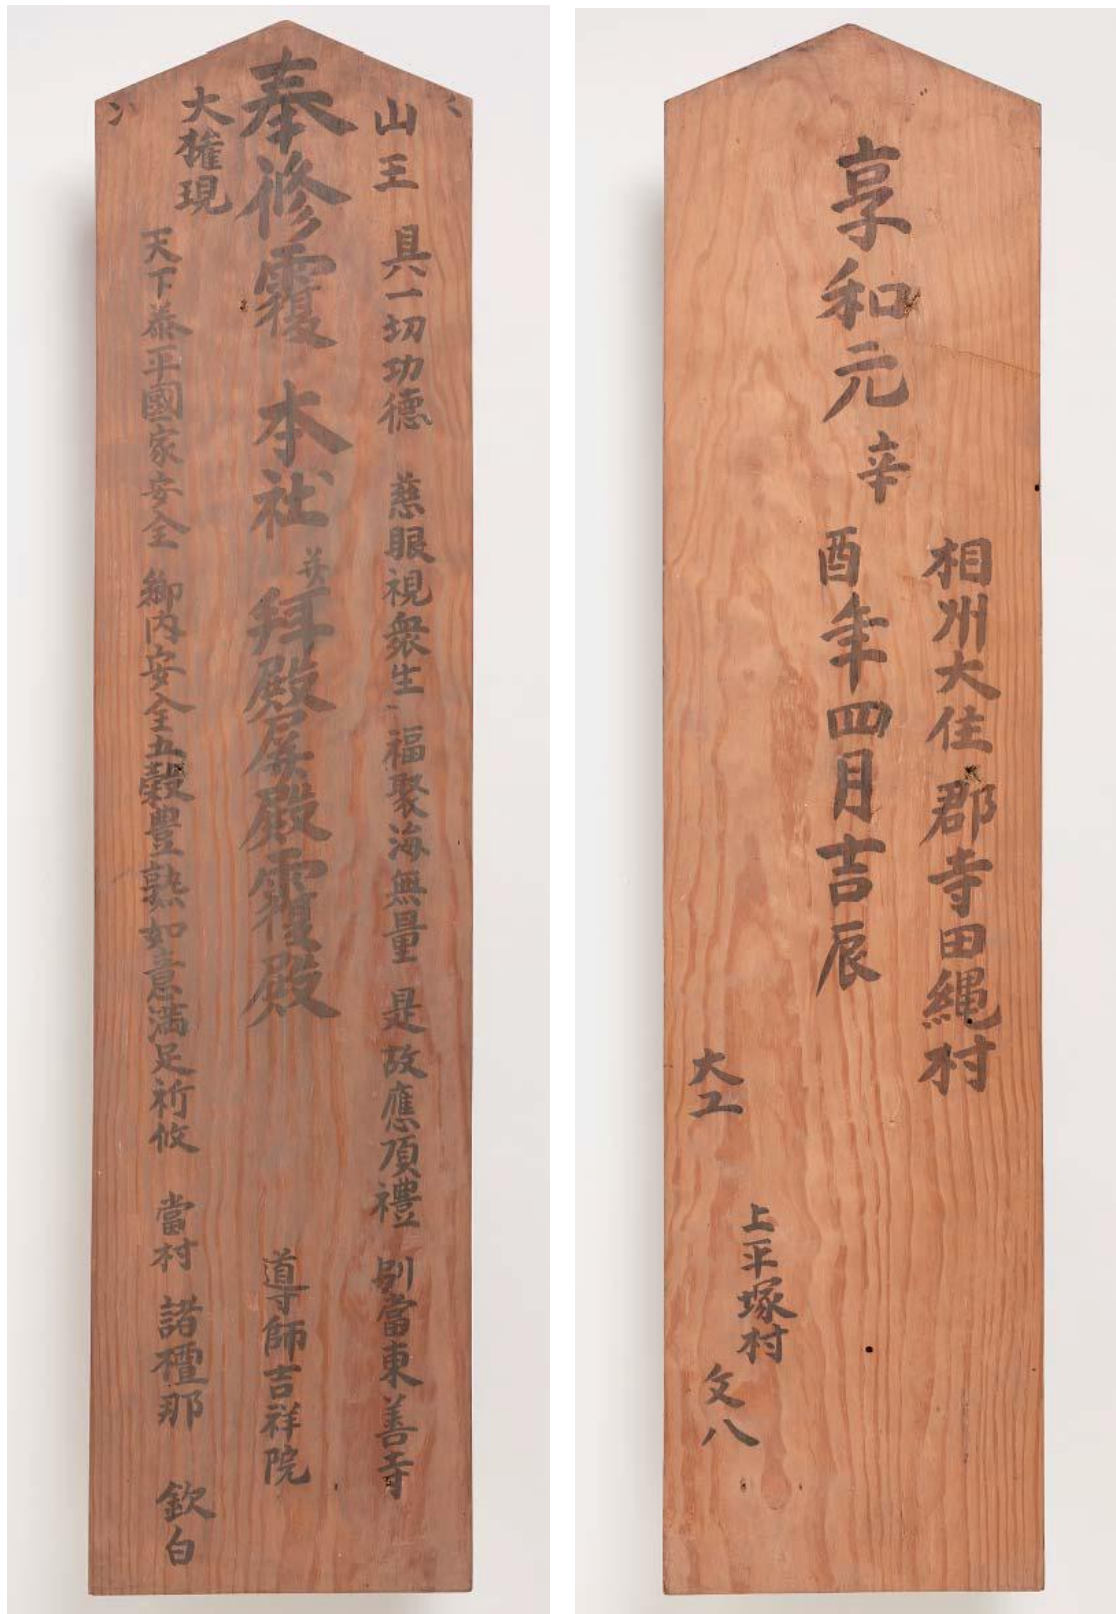 山王
具一切功徳 慈眼視衆生 福聚海無量 是故應頂禮 別當東善寺
奉修覆 本社并拝殿屏殿覆殿 導師吉祥院
大権現
天下泰平國家安全 郷内安全五穀豊熟如意満足祈攸 當村 諸檀那 欽白
相州大住郡寺田縄村
享和元辛酉年四月吉辰
大工
上平塚村
文八